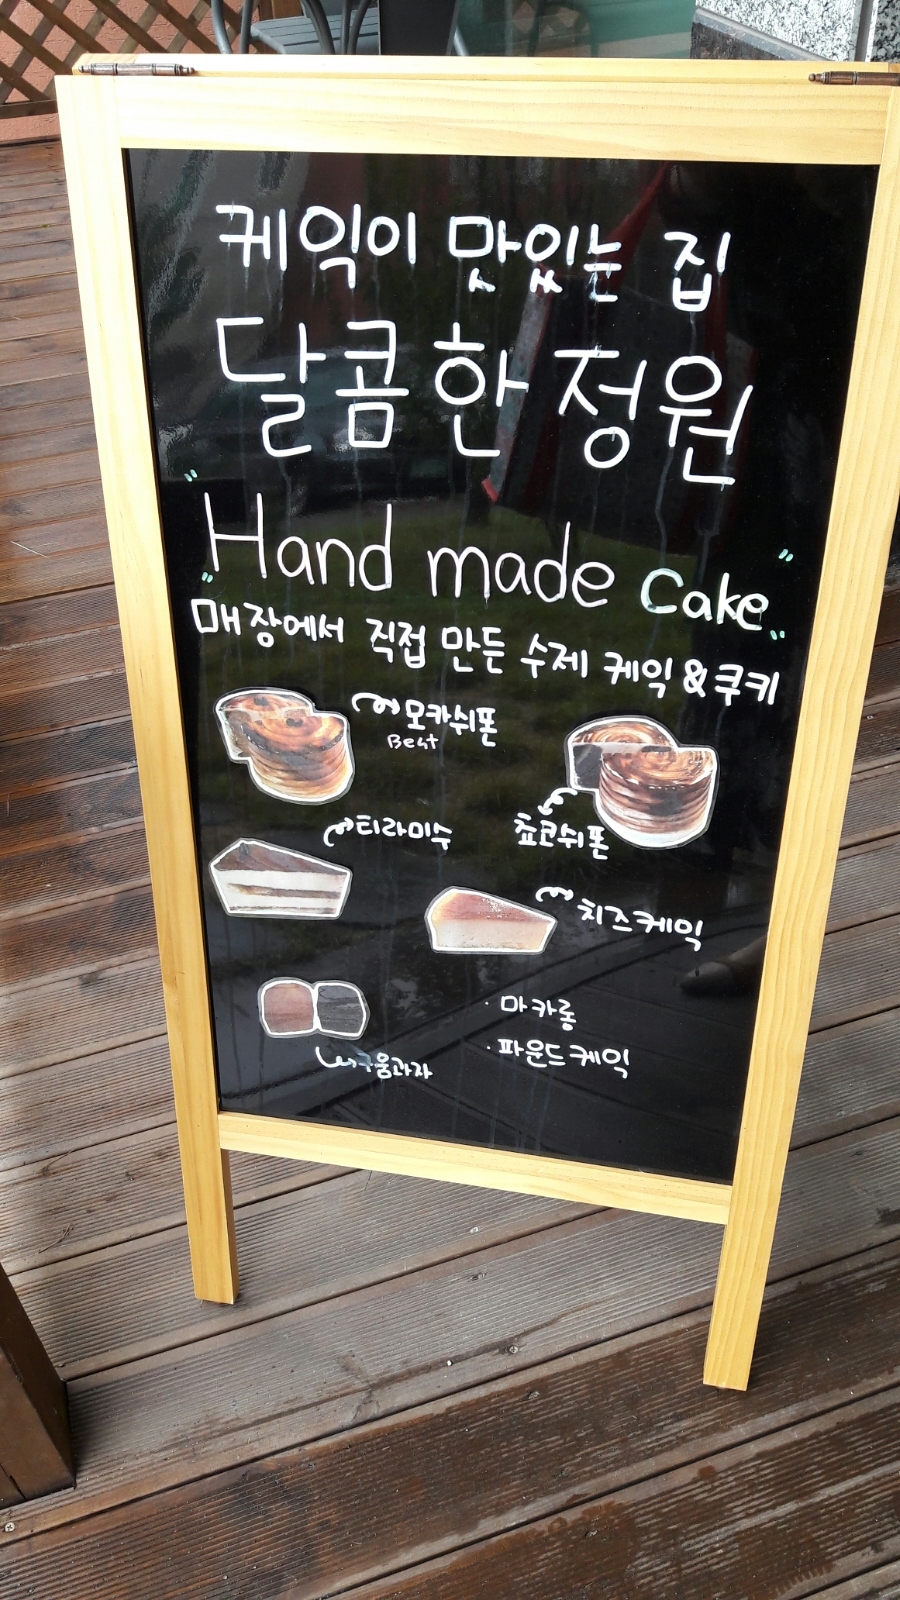 케익이 맛있는 집
달콤한정원
"Hand made cake"
"매장에서 직접 만든 수제 케익&쿠키"
모카쉬폰
Best
쵸코쉬폰
티라미수
치즈케익
· 마카롱
· 파운드케익
구움과자